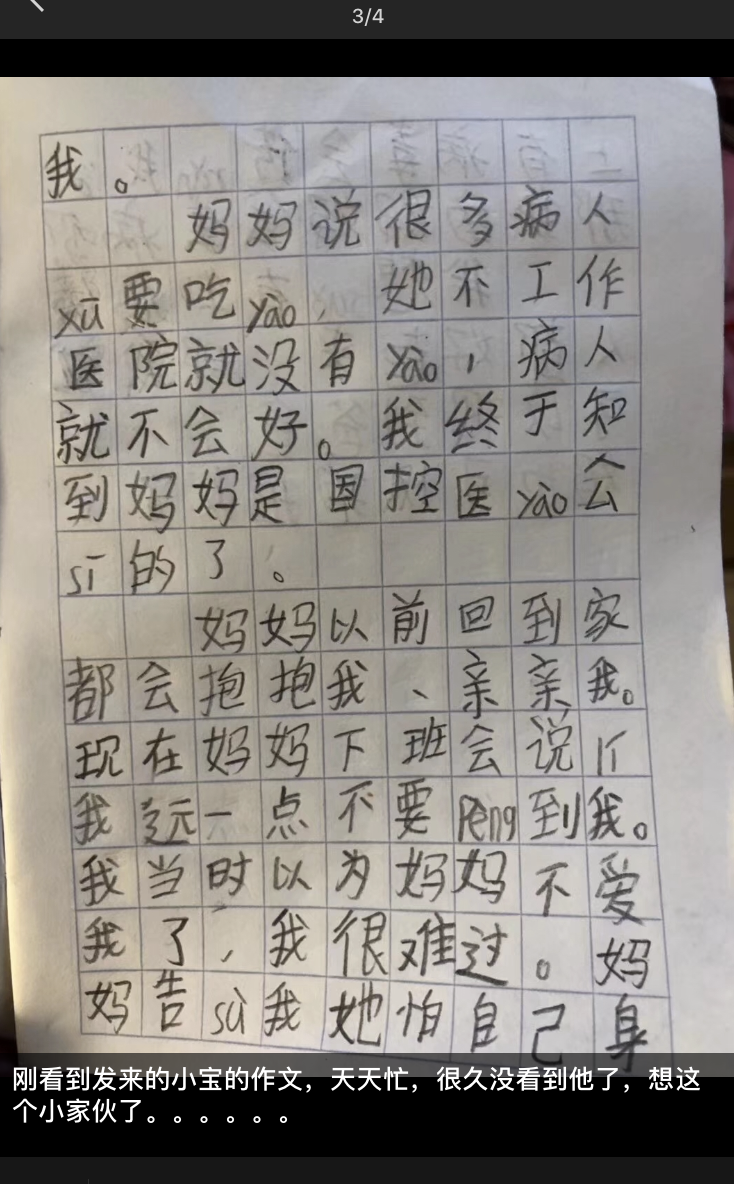 3/4
我。
妈妈说很多病人
xū要吃yào，她不工作
医院就没有yào，病人
就不会好。我终于知
到妈妈是国控医yào公
sī的了。
妈妈以前回到家
都会抱抱我、亲亲我。
现在妈妈下班会说
我远一点不要Peng到我。
我当时以为妈妈不爱
我了，我很难过。妈
妈告sù我她怕自己身
刚看到发来的小宝的作文，天天忙，很久没看到他了，想这
个小家伙了。。。。。。